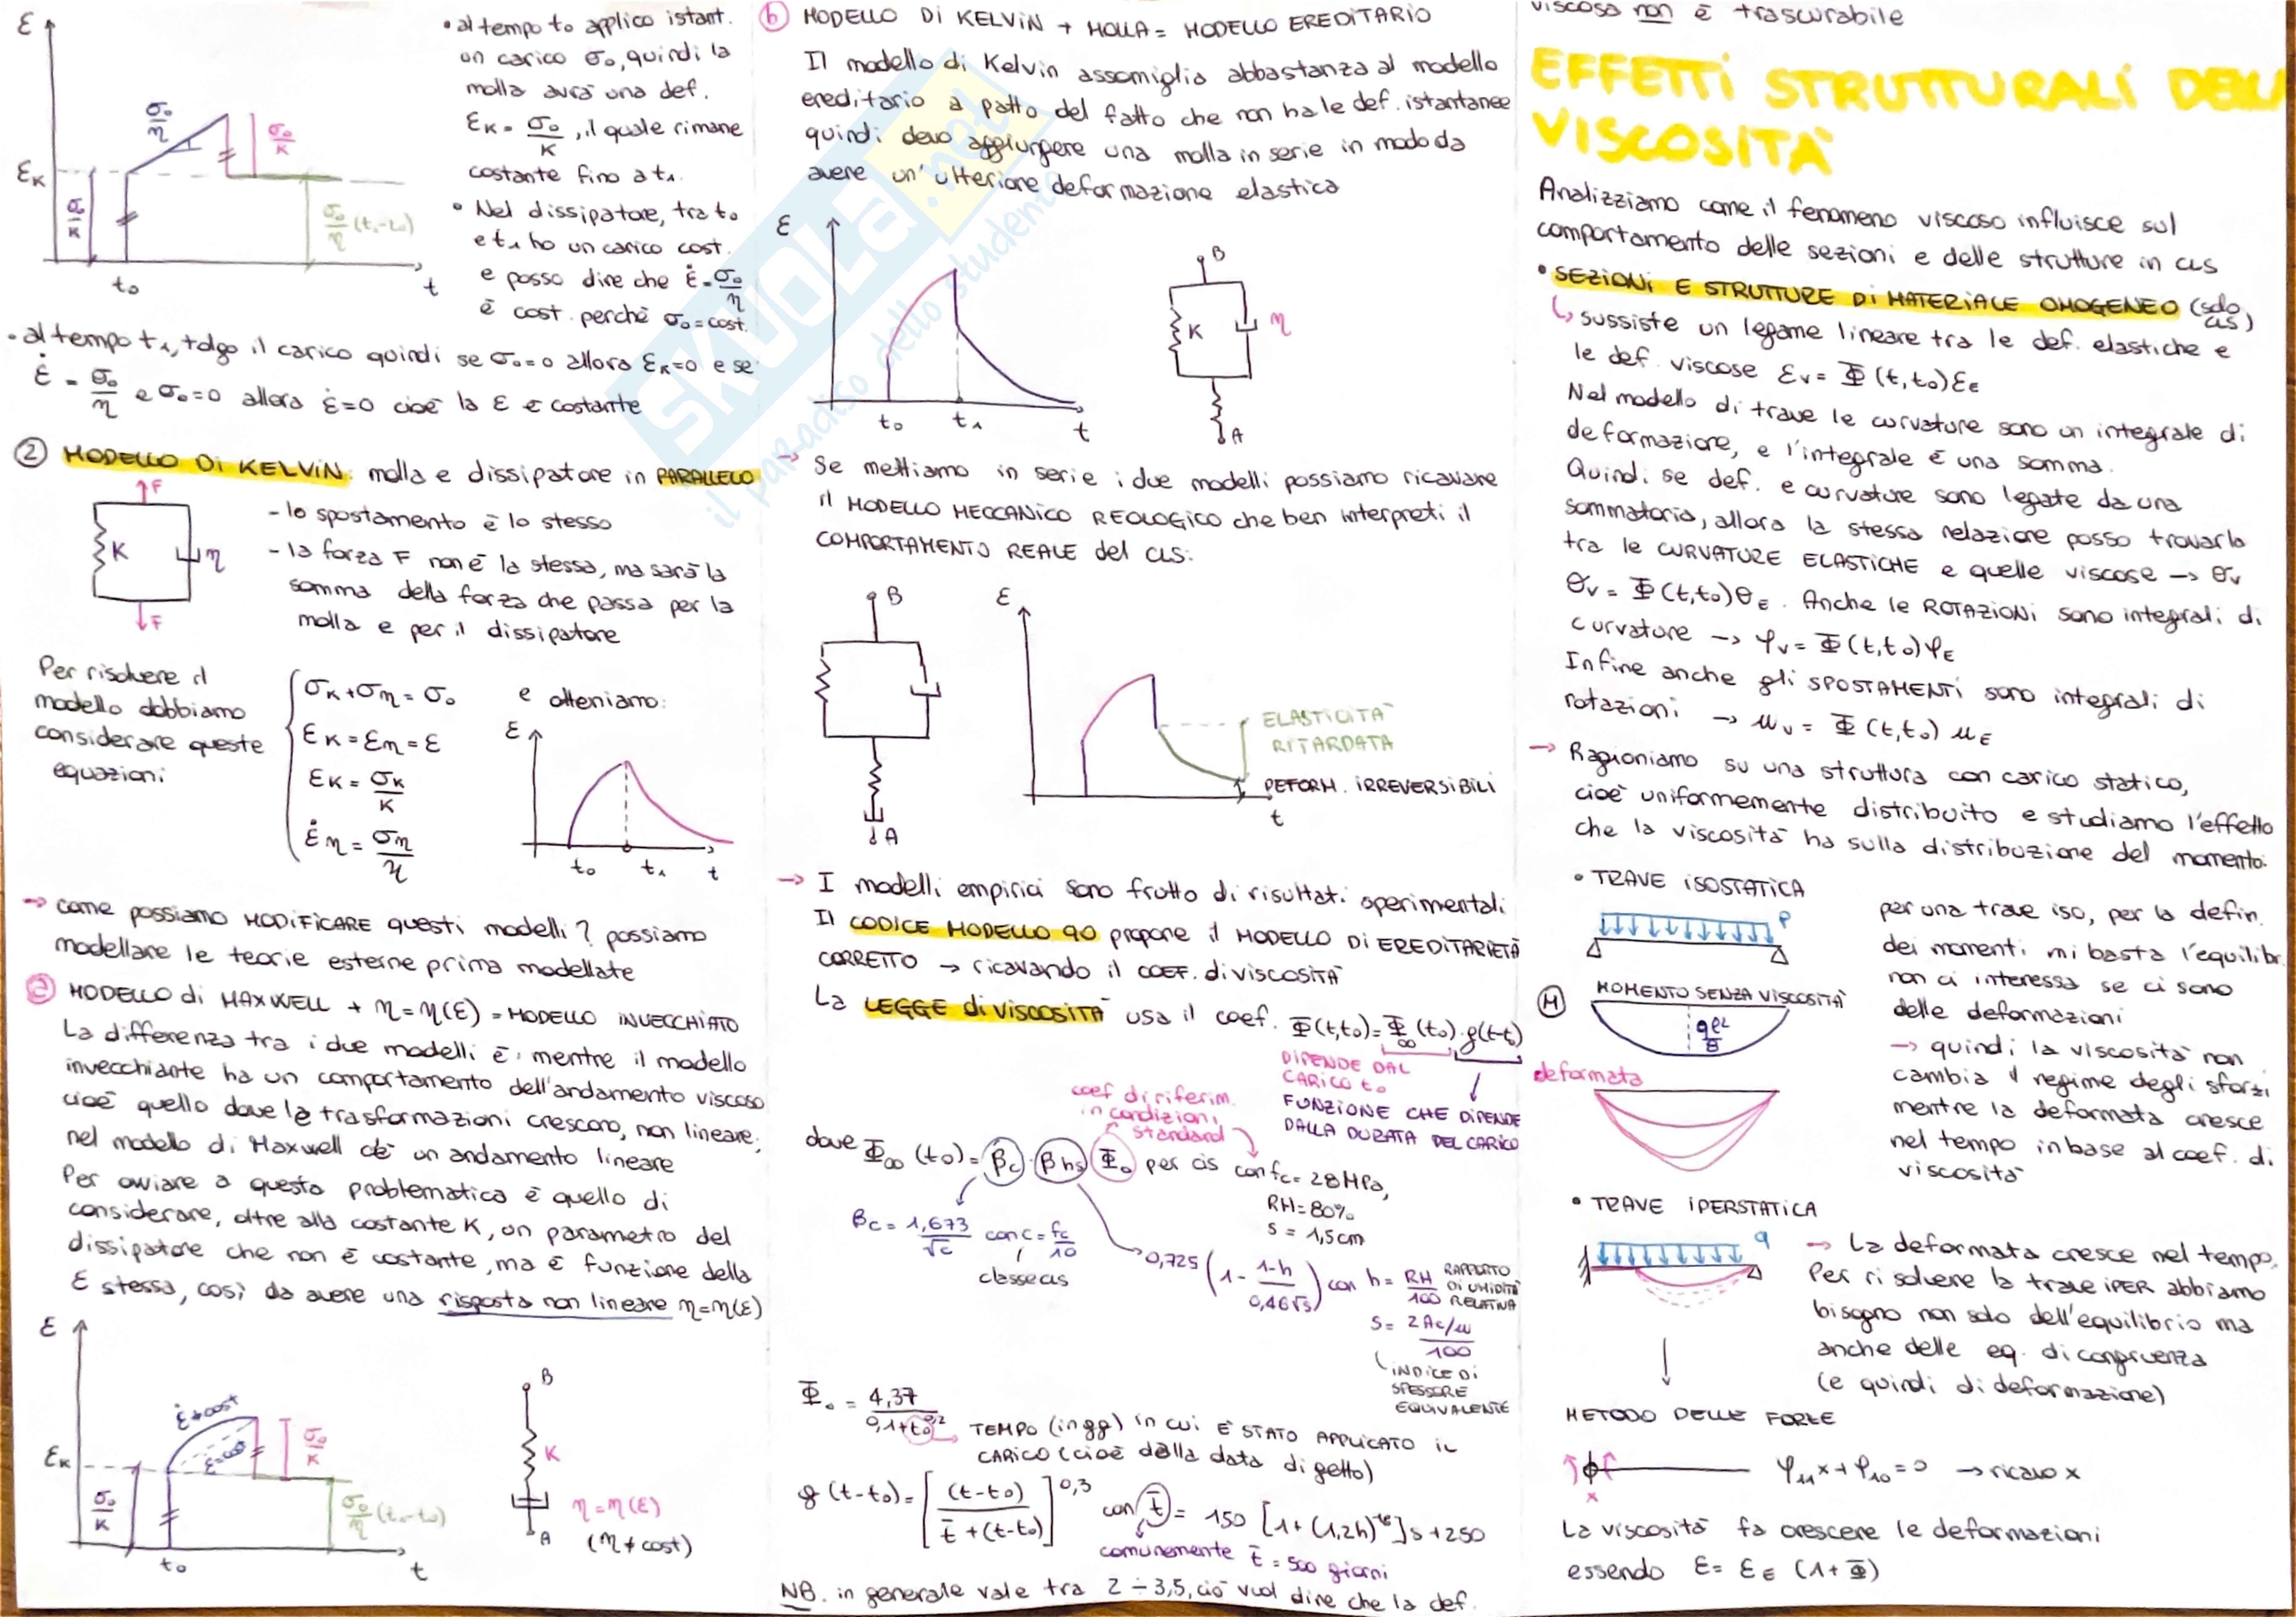 ε
σ₀/η
σ₀/K
ε_K
σ₀/K
σ₀/η (t₁-t₀)
t₀
t
• al tempo t₀ applico istant.
un carico σ₀, quindi la
molla avrà una def.
ε_K = σ₀/K, il quale rimane
costante fino a t₁.
• Nel dissipatore, tra t₀
e t₁ ho un carico cost.
e posso dire che ε̇ = σ₀/η
è cost. perchè σ₀ = cost.
• al tempo t₁, tolgo il carico quindi se σ₀=0 allora ε_K=0 e se
ε̇ = σ₀/η e σ₀=0 allora ε̇=0 cioè la ε è costante
② MODELLO DI KELVIN: molla e dissipatore in PARALLELO
F
K
η
F
- lo spostamento è lo stesso
- la forza F non è la stessa, ma sarà la
somma della forza che passa per la
molla e per il dissipatore
Per risolvere il
modello dobbiamo
considerare queste
equazioni
σ_K + σ_η = σ₀
ε_K = ε_η = ε
ε_K = σ_K/K
ε̇_η = σ_η/η
e otteniamo:
ε
t₀ t₁ t
→ come possiamo MODIFICARE questi modelli? possiamo
modellare le teorie esterne prima modellate
ⓐ MODELLO di MAXWELL + η=η(ε) = MODELLO INVECCHIATO
La differenza tra i due modelli è: mentre il modello
invecchiante ha un comportamento dell'andamento viscoso
cioè quello dove le trasformazioni crescono, non lineare;
nel modello di Maxwell c'è un andamento lineare
Per ovviare a questa problematica è quello di
considerare, oltre alla costante K, un parametro del
dissipatore che non è costante, ma è funzione della
ε stessa, così da avere una risposta non lineare η=η(ε)
ε
ε̇≠cost
ε̇=cost
σ₀/K
ε_K
σ₀/K
σ₀/η (t₁-t₀)
t₀
t
B
K
η=η(ε)
A
(η≠cost)
ⓑ MODELLO DI KELVIN + MOLLA = MODELLO EREDITARIO
Il modello di Kelvin assomiglia abbastanza al modello
ereditario a patto del fatto che non ha le def. istantanee
quindi devo aggiungere una molla in serie in modo da
avere un'ulteriore deformazione elastica
SKUOLA.net
il paradiso dello studente
ε
t₀ t₁ t
B
K
η
A
→ Se mettiamo in serie i due modelli possiamo ricavare
il MODELLO MECCANICO REOLOGICO che ben interpreti il
COMPORTAMENTO REALE del CLS:
B
A
ε
ELASTICITÀ
RITARDATA
DEFORM. IRREVERSIBILI
t
→ I modelli empirici sono frutto di risultati sperimentali
Il CODICE MODELLO 90 propone il MODELLO DI EREDITARIETÀ
CORRETTO → ricavando il COEF. di VISCOSITÀ
La LEGGE di VISCOSITÀ usa il coef. Φ(t,t₀)=Φ∞(t₀)·g(t-t₀)
DIPENDE DAL
CARICO t₀
FUNZIONE CHE DIPENDE
DALLA DURATA DEL CARICO
coef di riferim.
in condizioni
standard
dove Φ∞(t₀)= βc · βhs Φ₀ per cls con fc=28MPa,
RH=80%
s=1,5cm
βc = 1,673/√c con c = fc/10
classe cls
0,725 (1 - (1-h)/(0,46√s)) con h = RH/100 RAPPORTO
DI UMIDITÀ
RELATIVA
s = (2Ac/u)/100
INDICE DI
SPESSORE
EQUIVALENTE
Φ₀ = 4,37/(0,1+t₀^0,2) TEMPO (in gg) in cui È STATO APPLICATO IL
CARICO (cioè dalla data di getto)
g(t-t₀)= [(t-t₀)/(t̄+(t-t₀))]^0,3 con t̄ = 150 [1+(1,2h)^18]s+250
comunemente t̄ = 500 giorni
NB. in generale vale tra 2÷3,5, ciò vuol dire che la def.
viscosa non è trascurabile
EFFETTI STRUTTURALI DELLA
VISCOSITÀ
Analizziamo come il fenomeno viscoso influisce sul
comportamento delle sezioni e delle strutture in CLS
• SEZIONI E STRUTTURE DI MATERIALE OMOGENEO (solo
cls)
↳ sussiste un legame lineare tra le def. elastiche e
le def. viscose εv = Φ(t,t₀)εE
Nel modello di trave le curvature sono un integrale di
deformazione, e l'integrale è una somma.
Quindi se def. e curvature sono legate da una
sommatoria, allora la stessa relazione posso trovarla
tra le CURVATURE ELASTICHE e quelle viscose → θv
θv = Φ(t,t₀)θE. Anche le ROTAZIONI sono integrali di
curvature → φv = Φ(t,t₀)φE
Infine anche gli SPOSTAMENTI sono integrali di
rotazioni → uv = Φ(t,t₀) uE
→ Ragioniamo su una struttura con carico statico,
cioè uniformemente distribuito e studiamo l'effetto
che la viscosità ha sulla distribuzione del momento:
• TRAVE ISOSTATICA
P
M
MOMENTO SENZA VISCOSITÀ
qℓ²/8
deformata
per una trave iso, per la defin.
dei momenti mi basta l'equilibr.
non ci interessa se ci sono
delle deformazioni
→ quindi la viscosità non
cambia il regime degli sforzi
mentre la deformata cresce
nel tempo in base al coef. di
viscosità
• TRAVE IPERSTATICA
q
→ La deformata cresce nel tempo.
Per risolvere la trave IPER abbiamo
bisogno non solo dell'equilibrio ma
anche delle eq. di congruenza
(e quindi di deformazione)
METODO DELLE FORZE
x
φ₁₁x+φ₁₀=0 → ricavo x
La viscosità fa crescere le deformazioni
essendo ε= εE (1+Φ)